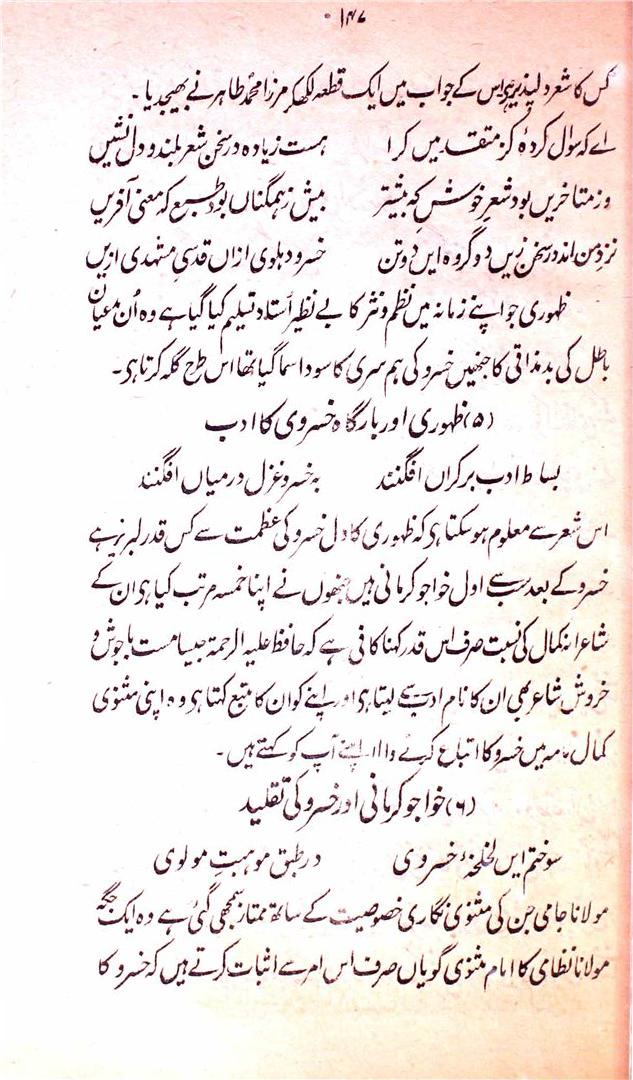 ۱۴۷
کس کا شعر دلپذیر ہی اس کے جواب میں ایک قطعہ لکھکر مرزا محمد طاہر نے بھیجدیا۔
اے کہ سوال کردۂ کز متقدمیں کرا ہست زیادہ در سخن شعر بلند و دل نشیں
وز متاخریں بود شعر خوش کہ بیشتر بیش ز ہمگناں بود طبع کہ معنی آفریں
نزد من اند در سخن زیں دو گروہ ایں دو تن خسرو دہلوی ازاں قدسی مشہدی ازیں
ظہوری جو اپنے زمانہ میں نظم و نثر کا بے نظیر اُستاد تسلیم کیا گیا ہے وہ اُن مدعیان
باطل کی بدمذاقی کا جنھیں خسرو کی ہم سری کا سودا سما گیا تھا اس طرح گلہ کرتا ہی۔
(۵) ظہوری اور بارگاہ خسروی کا ادب
بساط ادب بر کراں افگنند بہ خسرو غزل درمیاں افگنند
اس شعر سے معلوم ہو سکتا ہی کہ ظہوری کا دل خسرو کی عظمت سے کس قدر لبریز ہے
خسرو کے بعد سب سے اول خواجو کرمانی ہیں جنھوں نے اپنا خمسہ مرتب کیا ہی ان کے
شاعرانہ کمال کی نسبت صرف اس قدر کہنا کافی ہے کہ حافظ علیہ الرحمۃ جیسا مست باجوش و
خروش شاعر بھی ان کا نام ادب سے لیتا ہی اور اپنے کو ان کا متبع کہتا ہی وہ اپنی مثنوی
کمال نامہ میں خسرو کا اتباع کرنے والا اپنے آپ کو کہتے ہیں۔
(۶) خواجو کرمانی اور خسرو کی تقلید
سوختم ایں لخلخۂ خسروی در طبق موہبتِ مولوی
مولانا جامی جن کی مثنوی نگاری خصوصیت کے ساتھ ممتاز سمجھی گئی ہے وہ ایک جگہ
مولانا نظامی کا امام مثنوی گویاں صرف اس امر سے اثبات کرتے ہیں کہ خسرو کا